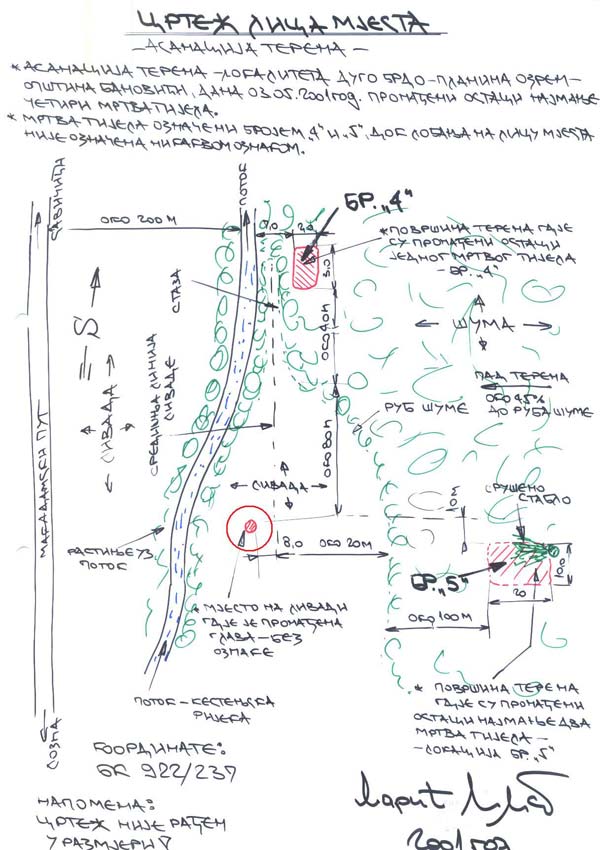 ЦРТЕЖ ЛИЦА МЈЕСТА
–АСАНАЦИЈА ТЕРЕНА–
*АСАНАЦИЈА ТЕРЕНА –ЛОКАЛИТЕТА ДУГО БРДО–ПЛАНИНА ОЗРЕН–
ОПШТИНА БАНОВИЋИ, ДАНА 03.05.2001 ГОД. ПРОНАЂЕНИ ОСТАЦИ НАЈМАЊЕ
ЧЕТИРИ МРТВА ТИЈЕЛА.
*МРТВА ТИЈЕЛА ОЗНАЧЕНИ БРОЈЕМ „4" И „5", ДОК ЛОБАЊА НА ЛИЦУ МЈЕСТА
НИЈЕ ОЗНАЧЕНА НИКАКВОМ ОЗНАКОМ.
САВИЧИЋИ
ПОТОК
ОКО 200 М
8,0
2,0
БР. „4"
*ПОВРШИНА ТЕРЕНА ГДЈЕ
СУ ПРОНАЂЕНИ ОСТАЦИ
ЈЕДНОГ МРТВОГ ТИЈЕЛА
– БР. „4"
5,0
S
СТАЗА
ОКО 40 М
ШУМА
ПАД ТЕРЕНА
ОКО 45%
ДО РУБА ШУМЕ
ЛИВАДА
СРЕДИШЊА ЛИНИЈА
ЛИВАДЕ
РУБ ШУМЕ
ОКО 80 М
МАКАДАМСКИ ПУТ
ЛИВАДА
СРУШЕНО
СТАБЛО
РАСТИЊЕ УЗ
ПОТОК
8,0
ОКО 20М
БР. „5"
10,0
20
*МЈЕСТО НА ЛИВАДИ
ГДЈЕ ЈЕ ПРОНАЂЕНА
ГЛАВА–БЕЗ
ОЗНАКЕ
ОКО 100 М
ПОТОК–КЕСТЕЊСКА
РИЈЕКА
* ПОВРШИНА ТЕРЕНА
ГДЈЕ СУ ПРОНАЂЕНИ
ОСТАЦИ НАЈМАЊЕ ДВА
МРТВА ТИЈЕЛА–
–ЛОКАЦИЈА БР. „5"
СОЗНА
КООРДИНАТЕ:
БК 922/237
НАПОМЕНА:
ЦРТЕЖ НИЈЕ РАЂЕН
У РАЗМЈЕРИ
2001 год